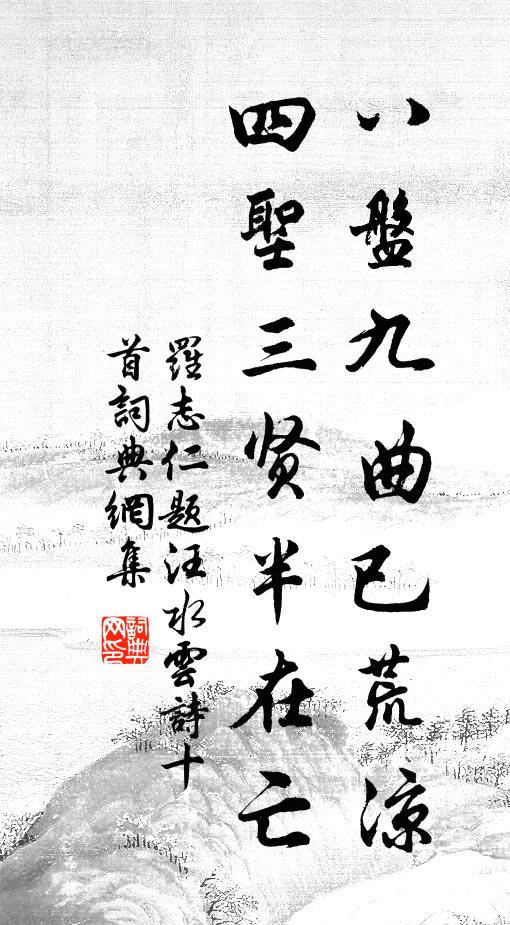 八盤九曲已荒凉
四聖三贤半在亡
羅志仁題汪水雲詩十
首詞典網集
詞典
网印